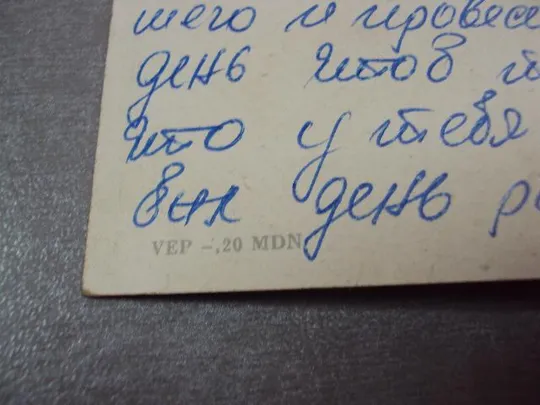 шего и провес
день чтоб т
что у тебя
был день р
VEP –,20 MDN